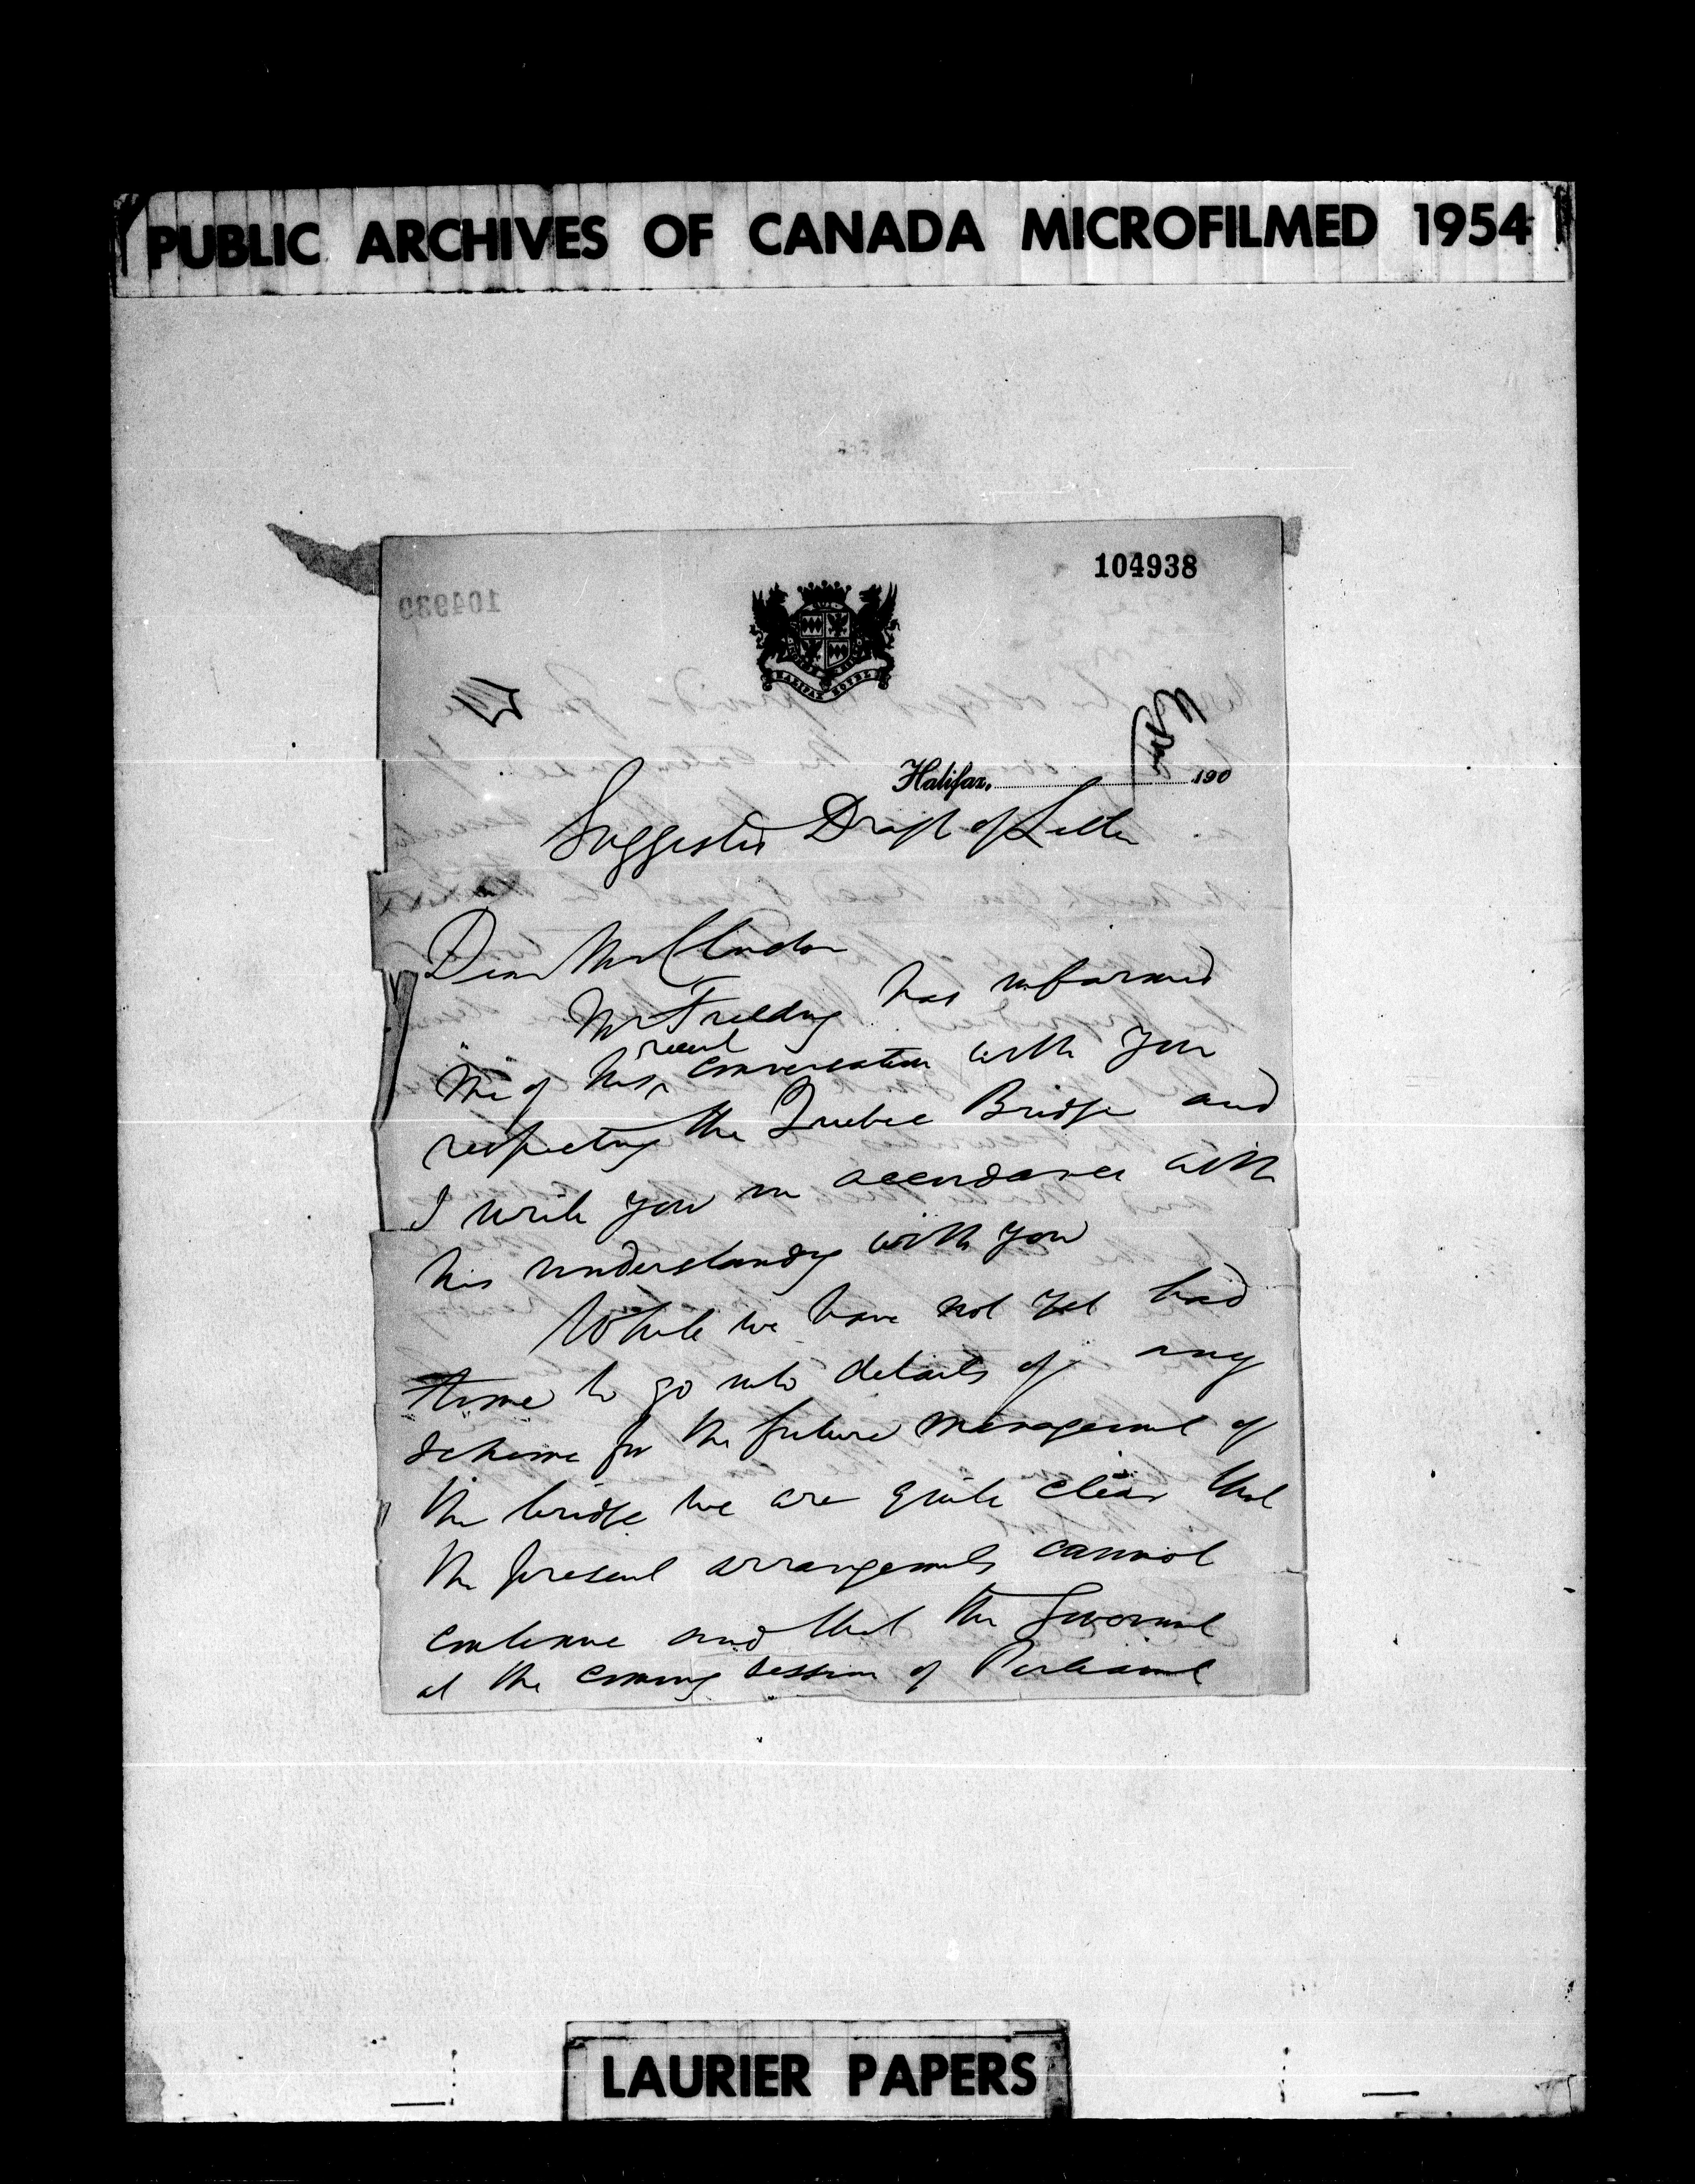 PUBLIC ARCHIVES OF CANADA MICROFILMED 1954
104938
104939
HALIFAX HOTEL
Halifax, 190
Suggested Draft of Letter
Dear Mr
Mr Fielding has informed
me of his recent conversation with you
respecting the Quebec Bridge and
I write you in accordance with
his understanding with you
While we have not yet had
time to go into details of any
scheme for the future management of
the bridge we are quite clear that
the present arrangements cannot
continue and that the Government
at the coming session of Parliament
LAURIER PAPERS